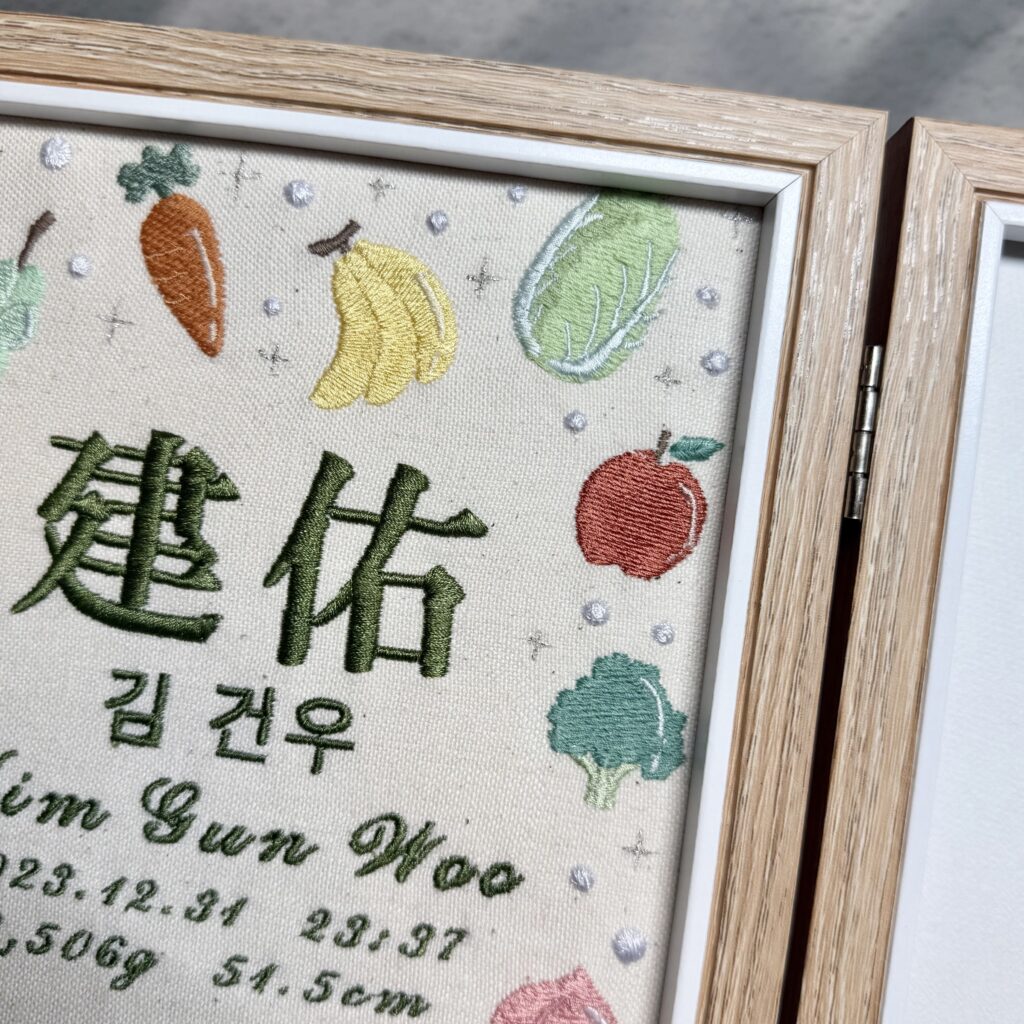 建佑
김 건우
Kim Gun Woo
2023.12.31 23:37
,506g 51.5cm